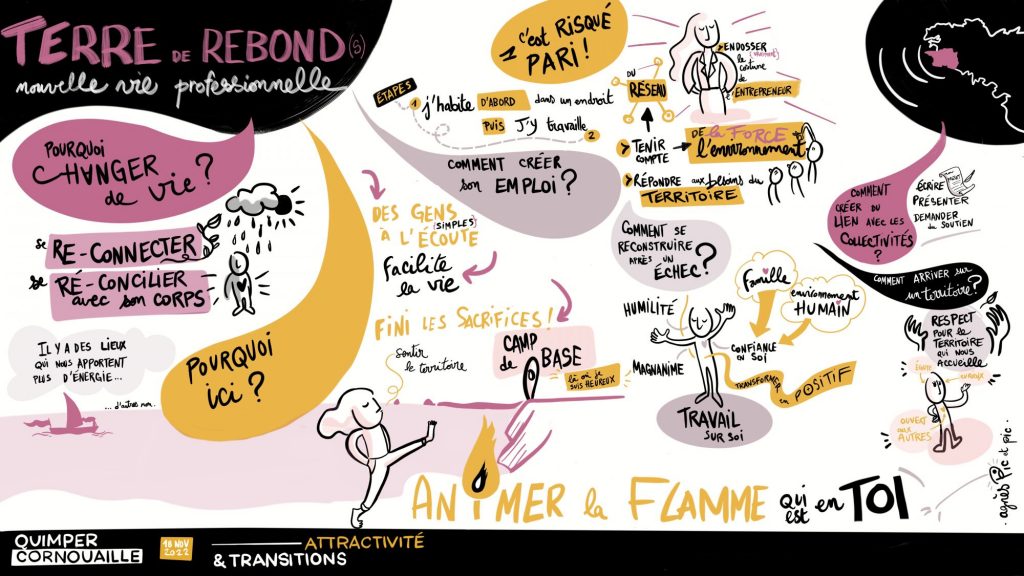 TERRE DE REBOND(S)
nouvelle vie professionnelle
POURQUOI
CHANGER
de vie ?
se RE-CONNECTER
se RÉ-CONCILIER
avec son CORPS
IL Y A DES LIEUX
QUI NOUS APPORTENT
PLUS D'ÉNERGIE...
... d'autres non.
POURQUOI
ici ?
c'est RISQUÉ
1 PARI !
ÉTAPES
1 j'habite D'ABORD dans un endroit
PUIS J'Y travaille 2
COMMENT CRÉER
son EMPLOI ?
DES GENS
(SIMPLES)
À L'ÉCOUTE
Facilite
la vie
FINI LES SACRIFICES !
sentir
le territoire
CAMP
de BASE
là où je
SUIS HEUREUX
ENDOSSER
le
costume
de
l'ENTREPRENEUR
DU
RÉSEAU
TENIR
COMPTE
DE la FORCE
de l'environnement
RÉPONDRE aux besoins du
TERRITOIRE
COMMENT SE
RECONSTRUIRE
APRÈS UN
ÉCHEC ?
HUMILITÉ
MAGNANIME
Famille
environnement
HUMAIN
CONFIANCE
EN SOI
TRANSFORMER
en POSITIF
TRAVAIL
SUR SOI
COMMENT
CRÉER DU
LIEN AVEC LES
COLLECTIVITÉS
?
ÉCRIRE
PROJET
PRÉSENTER
DEMANDER
du SOUTIEN
COMMENT ARRIVER sur
un territoire ?
RESPECT
POUR le
TERRITOIRE
QUI NOUS
ACCUEILLE
CURIEUX
OUVERT
aux
AUTRES
ANIMER la FLAMME QUI
EST en TOI
agnès Pic et pic.
QUIMPER
CORNOUAILLE
18 NOV
2022
ATTRACTIVITÉ
& TRANSITIONS